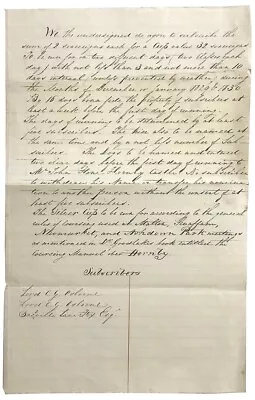 We the undersigned do agree to subscribe the
sum of 2 sovereigns each for a Cup value 32 sovereigns
To be run for on two different days, two
day with not less than 3 and not more than 10
days interval unless prevented by weather, during
the Months of December or January 1849 & 1850
By 16 dogs bona fide the property of subscribers at
least a week before the first day of running
The days of running to be determined by at least
five subscribers. The dogs also to be named at
the same time and by a not less number of Sub-
scribers. The dogs to be named and entered
two clear days before the first day of running to
Mr John Hornby and No subscriber
to withdraw his Name, or transfer his nomina-
tion to another person, without the consent of at
least five subscribers.
The Silver Cup to be run for according to the general
rules of coursing used at Malton, Swaffham,
Newmarket, and Ashdown Park meetings
as mentioned in Mr Goodlake's book entitled the
Coursing Manual
Subscribers
Lord C G Osborne
Lord C G Osborne
Fox Esqr